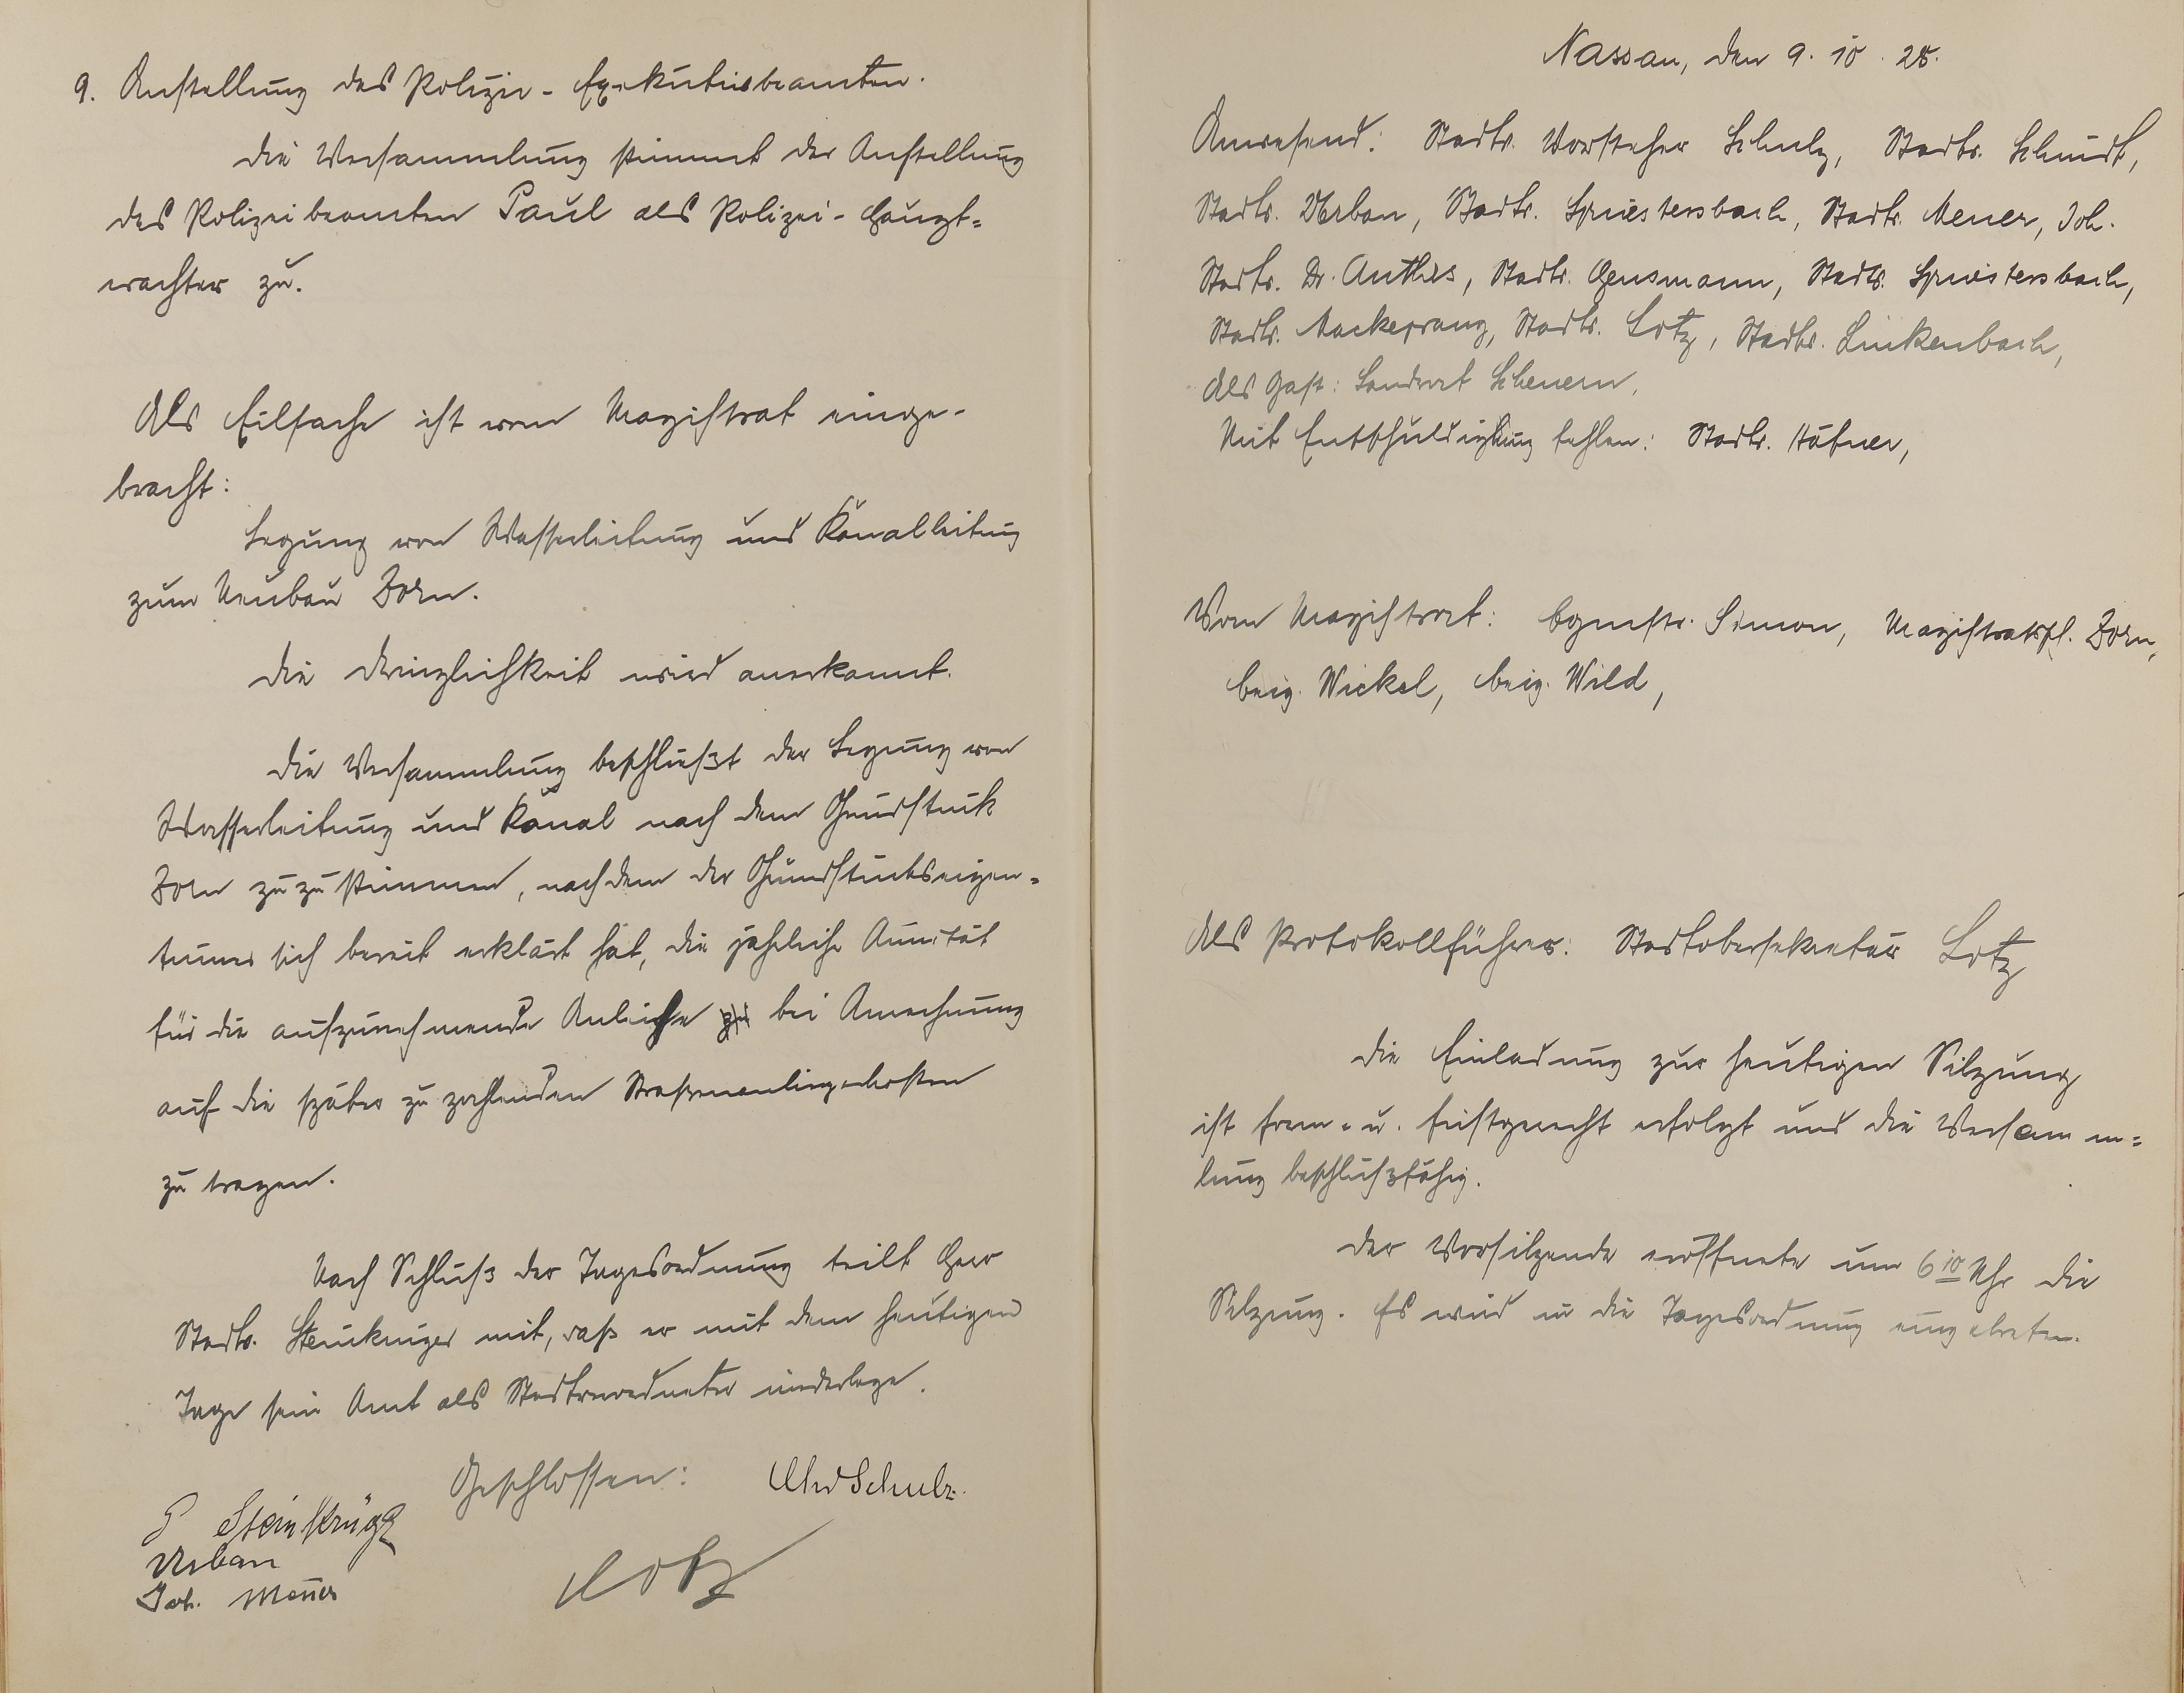 9. Anstellung des Polizei-Exekutivbeamten.
Die Versammlung stimmt der Anstellung
des Polizeibeamten Paul als Polizei-Haupt=
wachter zu.
Als Eilsache ist vom Magistrat einge-
bracht:
Legung von Wasserleitung und Kanalleitung
zum Neubau Born.
Die Dringlichkeit wird anerkannt.
Die Versammlung beschließt der Legung von
Wasserleitung und Kanal nach dem Grundstück
Born zuzustimmen, nachdem der Grundstückseigen=
tümer sich bereit erklärt hat, die jährliche Annität
für die aufzunehmende Anleihe zu bei Anrechnung
auf die später zu zahlenden Straßenanliegerkosten
zu tragen.
Nach Schluß der Tagesordnung teilt Herr
Stadtv. Steinkrüger mit, daß er mit dem heutigen
Tage sein Amt als Stadtverordneter niederlege.
Geschlossen: Schulz
Steinkrüger
Urban
Joh. Meuer
Lotz
Nassau, den 9. 10. 28.
Anwesend: Stadtv. Vorsteher Schulz, Stadtv. Schmidt,
Stadtv. Urban, Stadtv. Spriestersbach, Stadtv. Meuer, Joh.
Stadtv. Dr. Anthes, Stadtv. Gensmann, Stadtv. Spriestersbach,
Stadtv. Mackeprang, Stadtv. Lotz, Stadtv. Linkenbach,
Als Gast: Landrat Scheuern,
Mit Entschuldigung fehlen: Stadtv. Häfner,
Vom Magistrat: Bgmstr. Simon, Magistratssch. Born,
Beig. Nickel, Beig. Wild,
Als Protokollführer: Stadtobersekretär Lotz
Die Einladung zur heutigen Sitzung
ist form- u. fristgerecht erfolgt und die Versamm=
lung beschlußfähig.
Der Vorsitzende eröffnete um 6 10 Uhr die
Sitzung. Es wird in die Tagesordnung eingetreten.